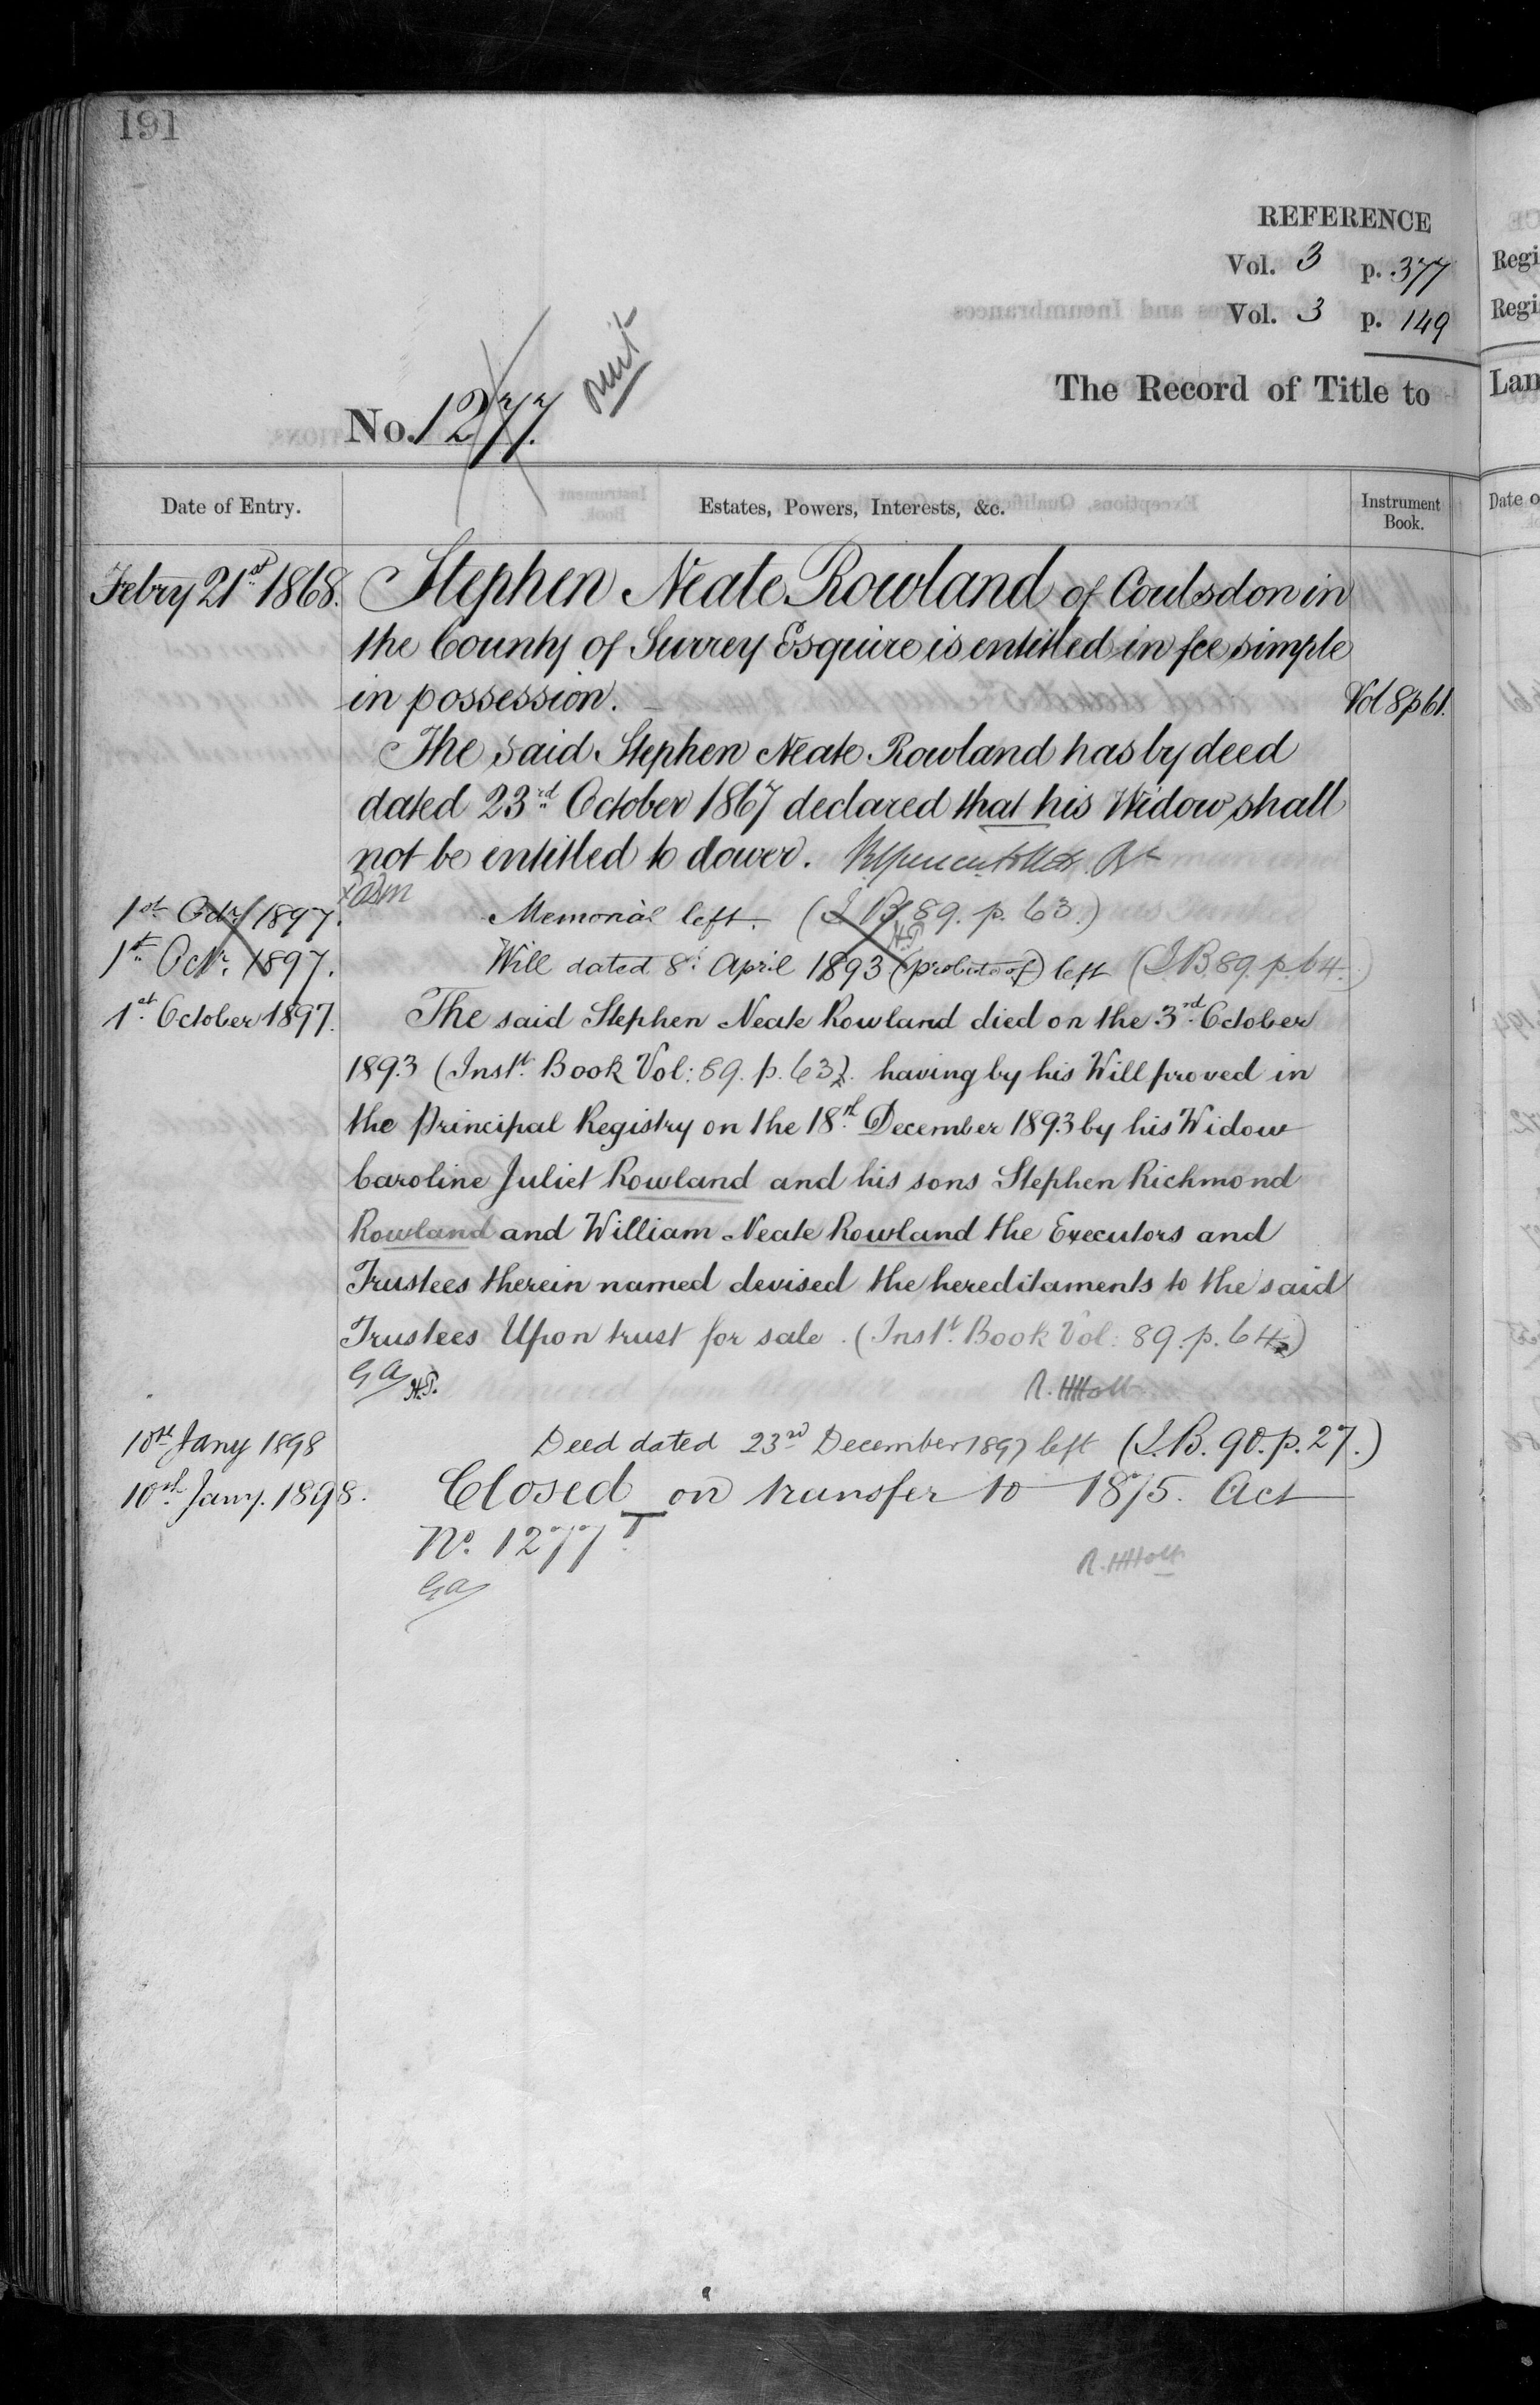 191
REFERENCE
Vol. 3 p. 377
Vol. 3 p. 149
The Record of Title to
No. 1277.
Date of Entry. Estates, Powers, Interests, &c. Instrument Book.
Febry 21st 1868. Stephen Neate Rowland of Coulsdon in
the County of Surrey Esquire is entitled in fee simple
in possession. Vol 8 p 61.
The said Stephen Neate Rowland has by deed
dated 23rd October 1867 declared that his Widow shall
not be entitled to dower.
1st Octr 1897. Memorial left. (I.B. 89. p. 63.)
1st Octr. 1897. Will dated 8th April 1893 (probate of) left (I.B. 89. p. 64.)
1st October 1897. The said Stephen Neate Rowland died on the 3rd October
1893 (Instt. Book Vol: 89. p. 63). having by his Will proved in
the Principal Registry on the 18th December 1893 by his Widow
Caroline Juliet Rowland and his sons Stephen Richmond
Rowland and William Neate Rowland the Executors and
Trustees therein named devised the hereditaments to the said
Trustees Upon trust for sale. (Instt. Book Vol: 89. p. 64)
GA H.T. R. HHolt
10th Jany 1898 Deed dated 23rd December 1897 left (I.B. 90. p. 27.)
10th Jany. 1898. Closed on transfer to 1875. Act
No. 1277 T.
GA R. HHolt
Regi
Regi
Lan
Date o